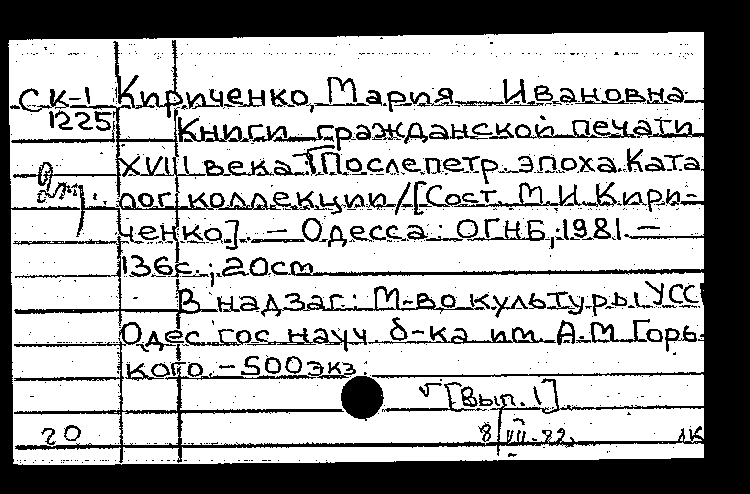 СК-1 Кириченко, Мария Ивановна
1225 Книги гражданской печати
XVIII века √ Послепетр. эпоха. Ката
лог коллекции / [Сост. М. И. Кири-
ченко]. – Одесса : ОГНБ, 1981. –
136с. ; 20cm
В надзаг.: М-во культуры УССР
Одес. гос. науч. б-ка им. А.М. Горь-
кого. – 500 экз.
√ [Вып. 1]
20 8/VII-82. лк